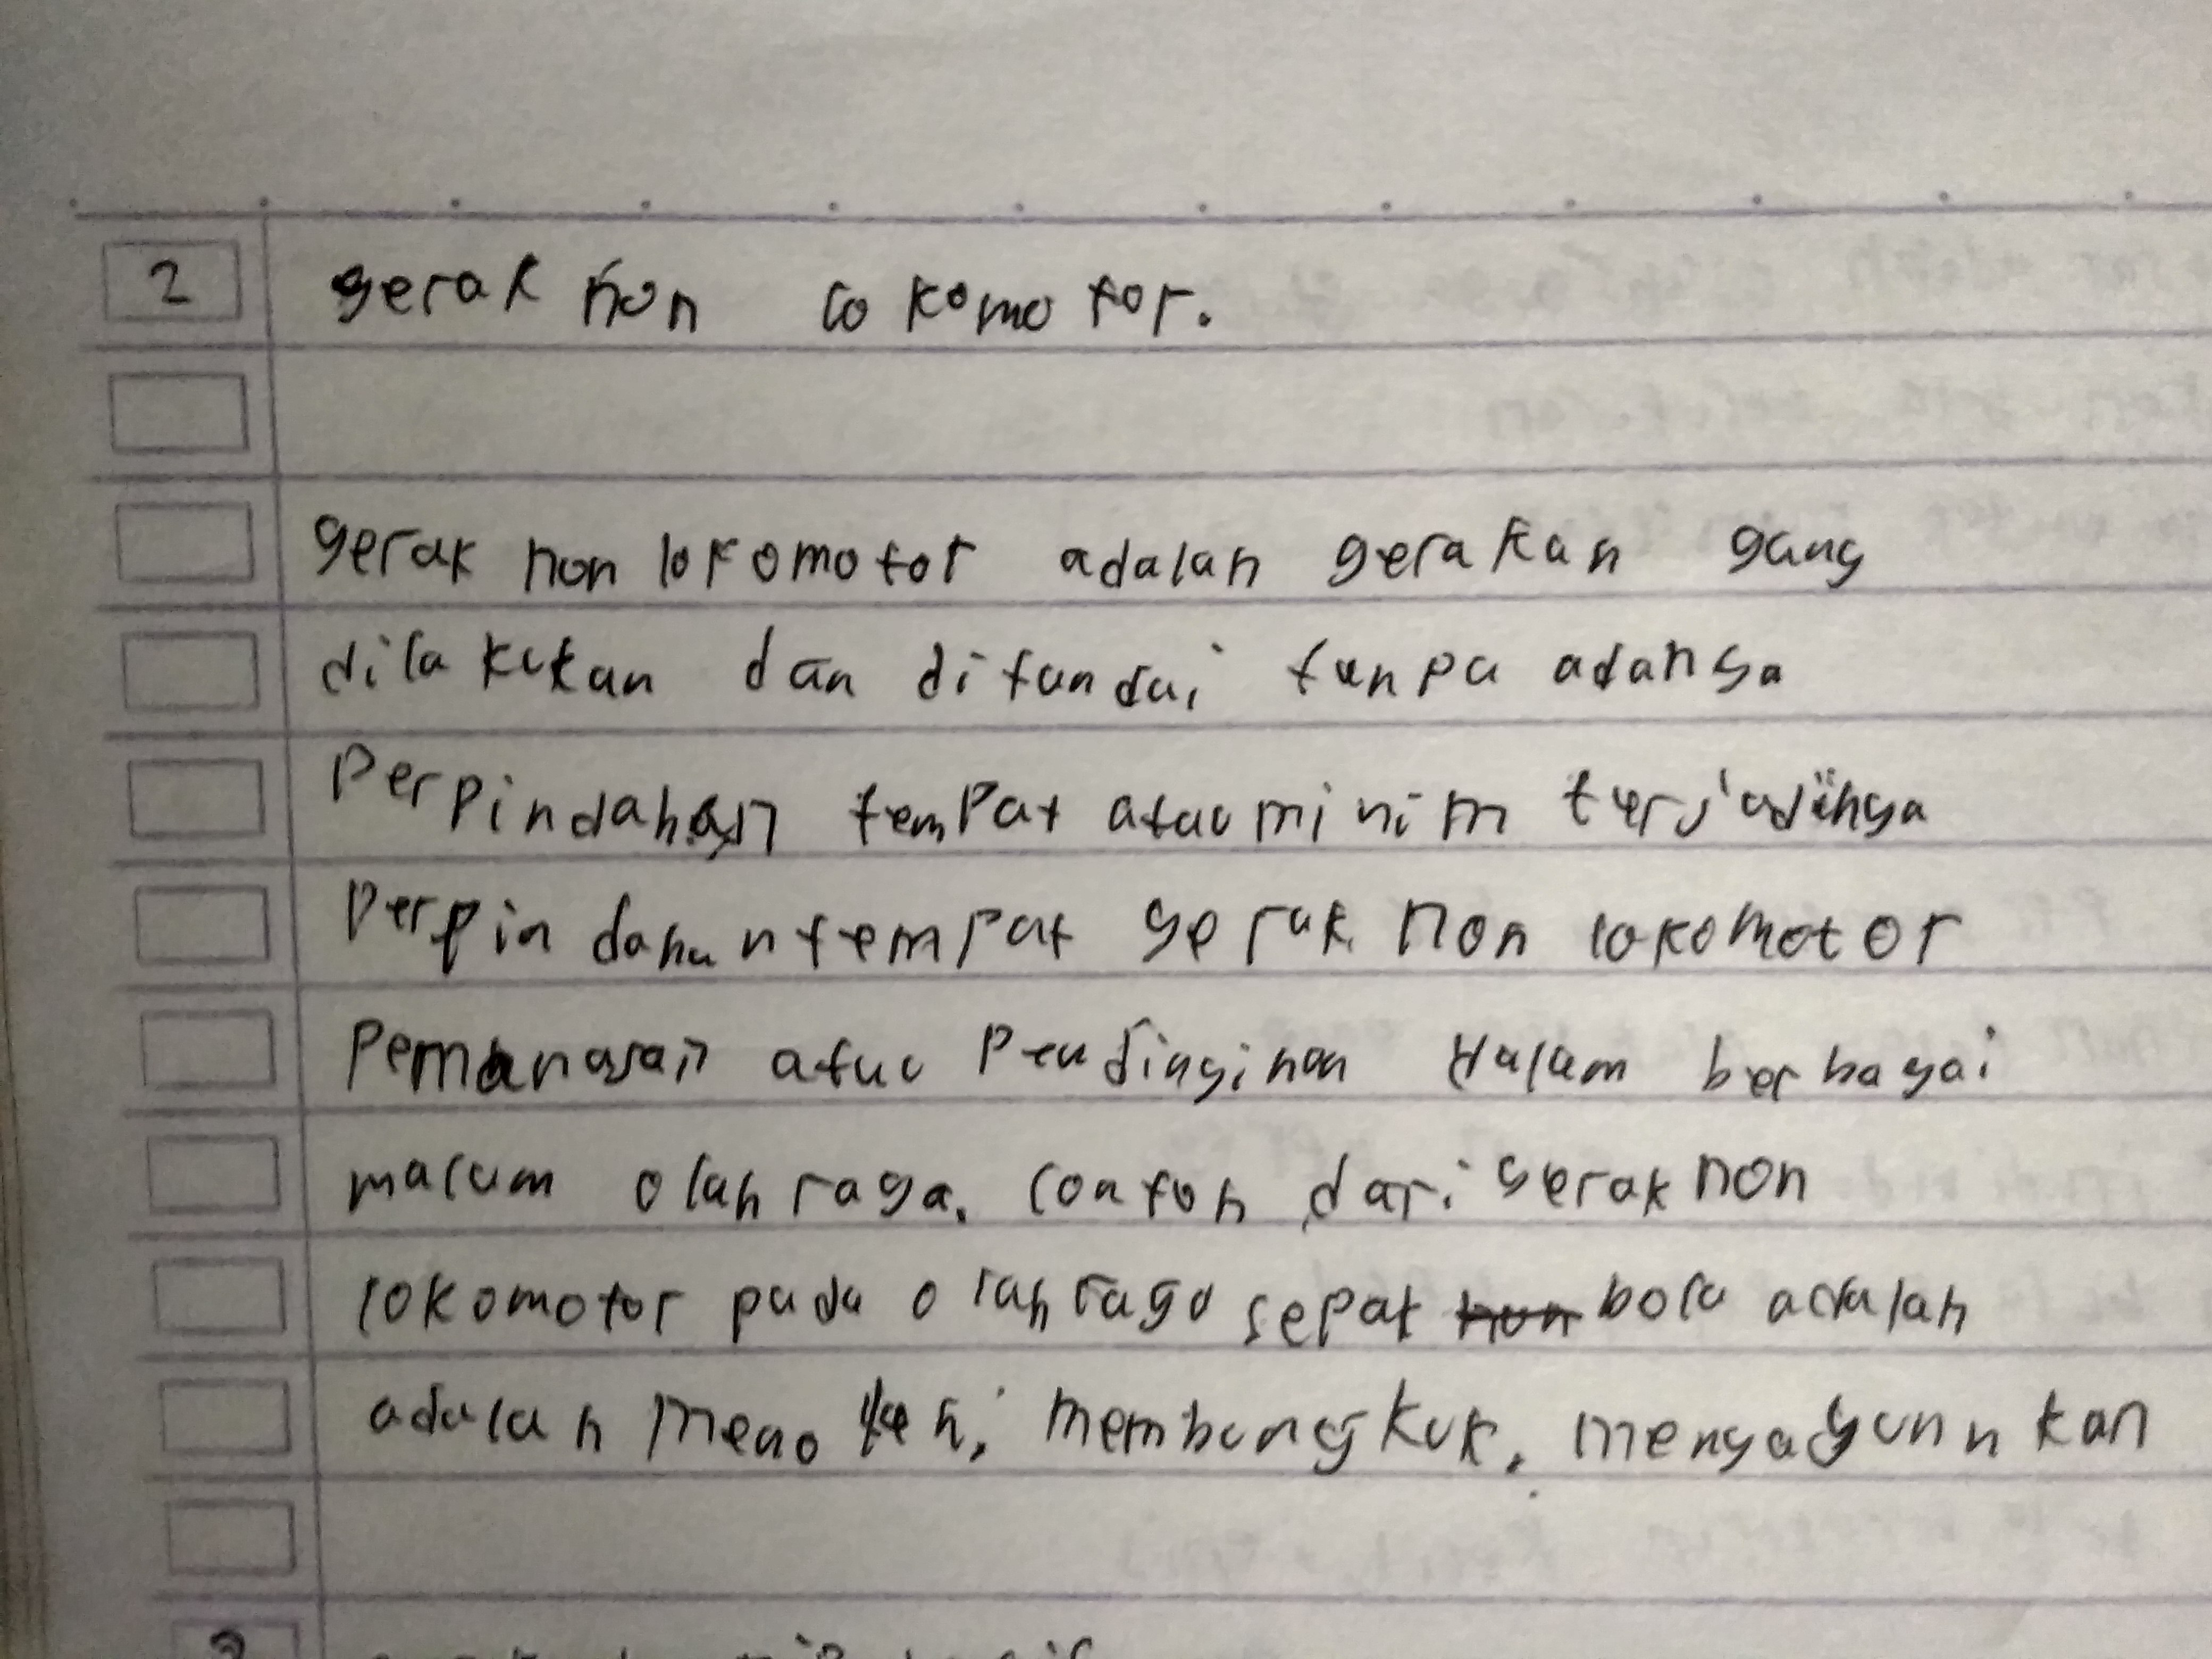 2 gerak non lokomotor.
gerak non lokomotor adalah gerakan yang
dilakukan dan ditandai tanpa adanya
Perpindahan tempat atau minim terjadinya
Perpindahan tempat gerak non lokomotor
Pemanasan atau Pendinginan dalam berbagai
macam olah raga. contoh dari gerak non
lokomotor pada olahraga sepak bola adalah
adalah menoleh, membungkuk, menyagunnkan